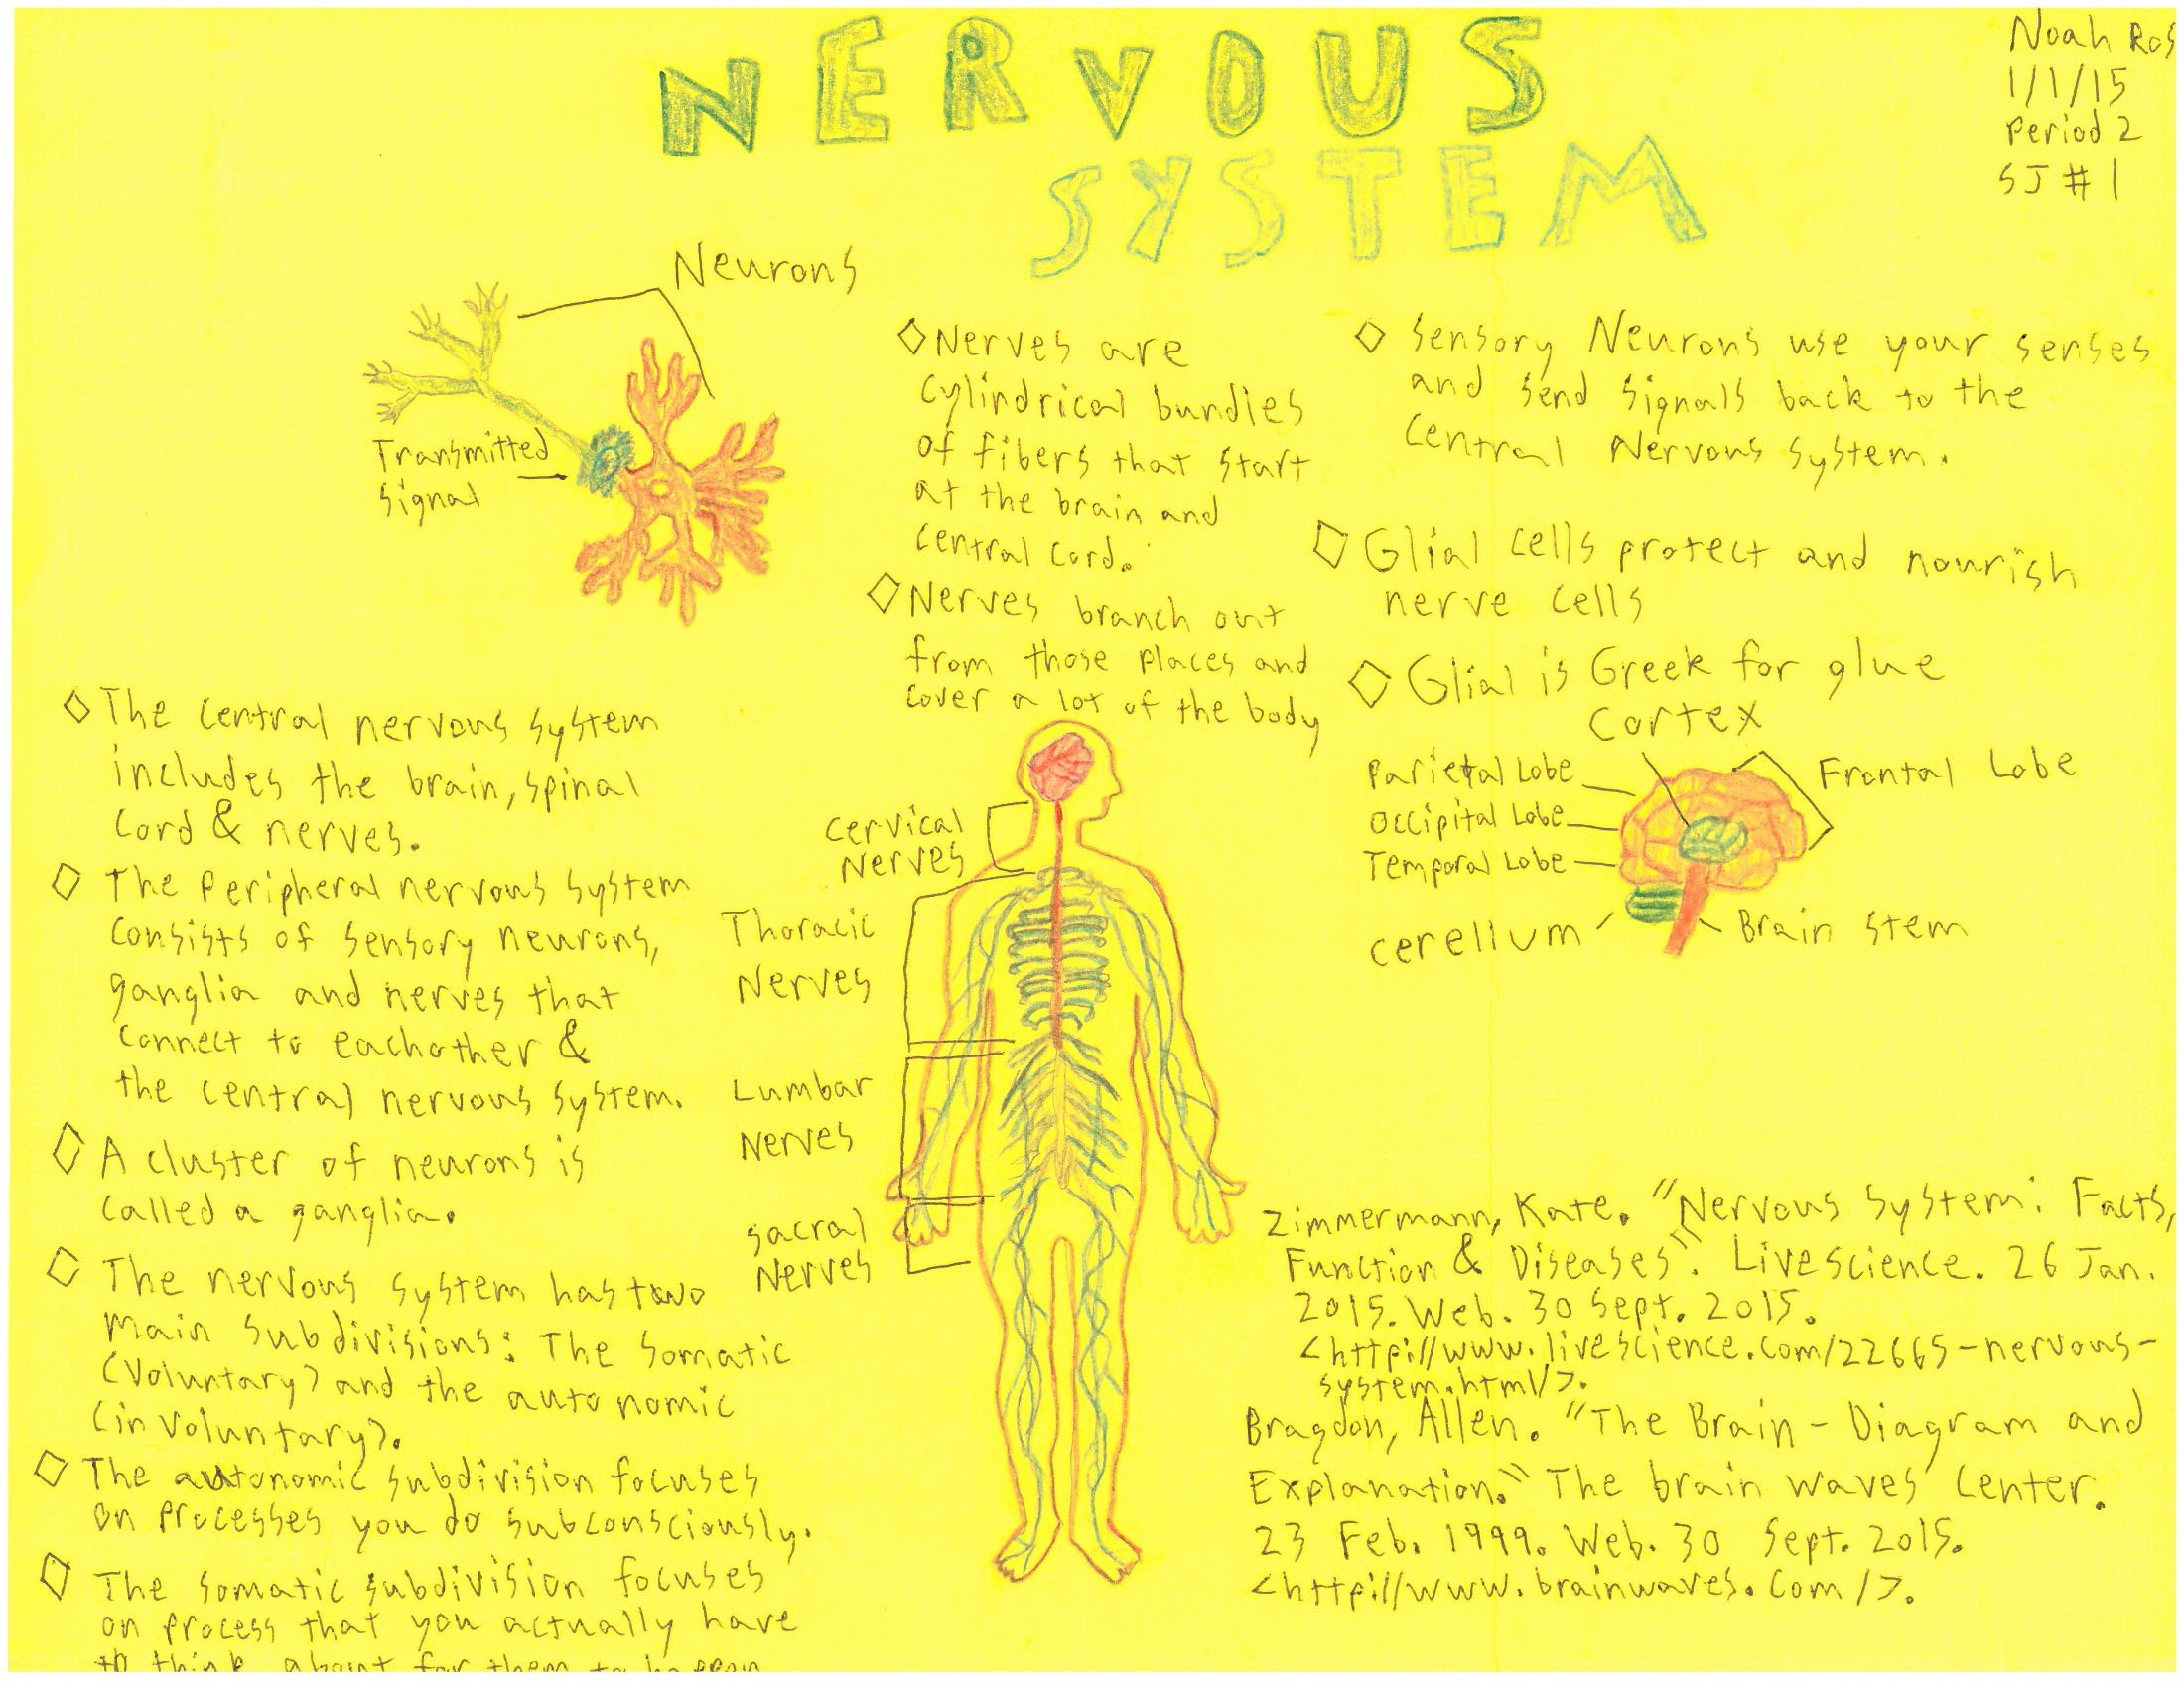 NERVOUS
SYSTEM
Noah Ros
1/1/15
Period 2
SJ # 1
Neurons
Transmitted
Signal
◇ Nerves are
cylindrical bundles
of fibers that start
at the brain and
central cord.
◇ Nerves branch out
from those places and
cover a lot of the body
◇ Sensory Neurons use your senses
and send signals back to the
Central Nervous System.
◇ Glial cells protect and nourish
nerve cells
◇ Glial is Greek for glue
Cortex
Parietal Lobe
Occipital Lobe
Temporal Lobe
Frontal Lobe
cerellum
Brain stem
◇ The central nervous system
includes the brain, spinal
cord & nerves.
◇ The Peripheral nervous system
consists of sensory neurons,
ganglia and nerves that
connect to eachother &
the central nervous system.
◇ A cluster of neurons is
called a ganglia.
◇ The nervous system has two
main subdivisions: The Somatic
(Voluntary) and the autonomic
(involuntary).
◇ The autonomic subdivision focuses
on processes you do subconsciously.
◇ The somatic subdivision focuses
on process that you actually have
to think about for them to happen
Cervical
Nerves
Thoracic
Nerves
Lumbar
Nerves
Sacral
Nerves
Zimmermann, Kate. "Nervous System: Facts,
Function & Diseases". Livescience. 26 Jan.
2015. Web. 30 Sept. 2015.
<http://www.livescience.com/22665-nervous-
system.html/>.
Bragdon, Allen. "The Brain - Diagram and
Explanation." The brain waves center.
23 Feb. 1999. Web. 30 Sept. 2015.
<http://www.brainwaves.com/>.